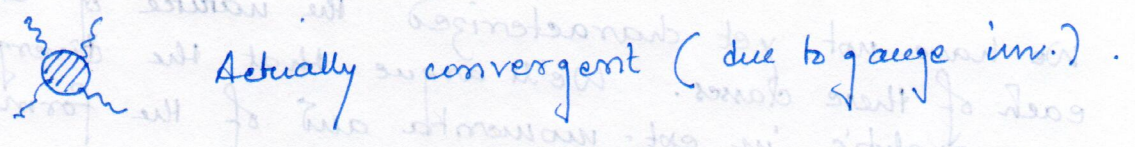 Actually convergent (due to gauge inv.).